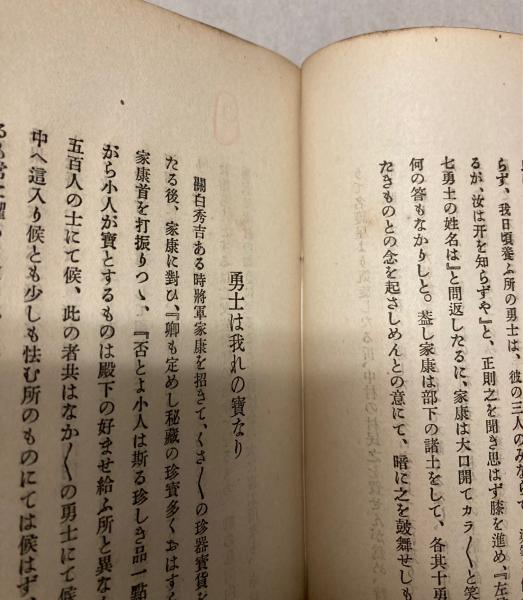 らず、我日頃養ふ所の勇士は、彼の三人のみならで
るが、汝は开を知らずや』と、正則之を聞き思はず膝を進め、『左
七勇士の姓名は』と問返したるに、家康は大口開てカラ〱と笑
何の答もなかりしと。蓋し家康は部下の諸士をして、各其十勇
たきものとの念を起さしめんとの意にて、暗に之を鼓舞せしも
勇士は我れの寶なり
關白秀吉ある時將軍家康を招きて、くさ〲の珍器寶貨を
たる後、家康に對ひ、『卿も定めし秘藏の珍寶多くおはすく
家康首を打振りつゝ、『否とよ小人は斯る珍しき品一點
がら小人が寶とするものは殿下の好ませ給ふ所と異な
五百人の士にて候、此の者共はなか〱の勇士にて候
中へ這入り候とも少しも怯む所のものにては候はず、